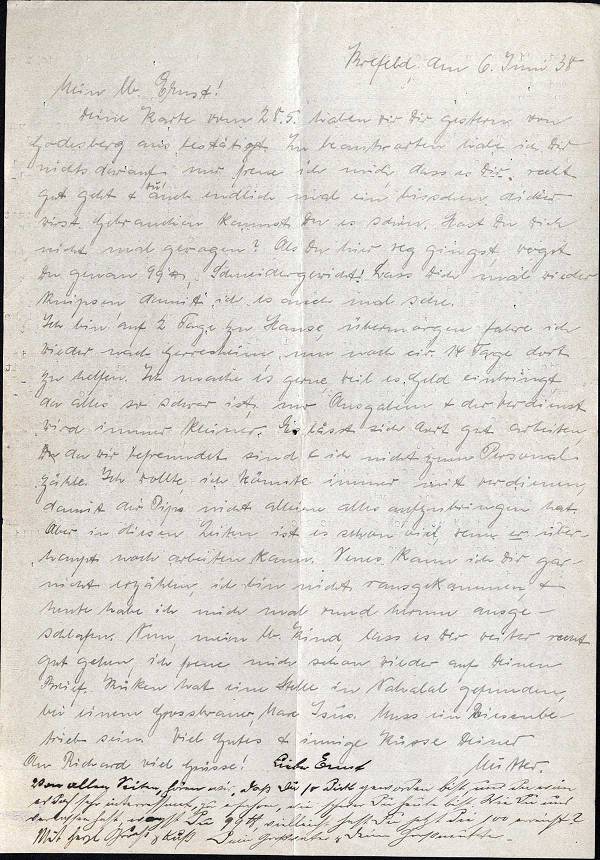 Krefeld, den 6. Juni 38
Mein lb. Ernst!
Deine Karte vom 28.5. haben wir Dir gestern von
Godesberg aus bestätigt. Zu beantworten habe ich Dir
nichts darauf, nur freue ich mich, dass es Dir recht
gut geht & Du auch endlich mal ein bisschen dicker
wirst. Gebrauchen kannst Du es schon. Hast Du Dich
nicht mal gewogen? Als Du hier weg gingst, wogst
Du genau 99 Schneidergewicht! Lass Dich mal wieder
knipsen damit ich es auch mal sehe.
Ich bin auf 2 Tage zu Hause, übermorgen fahre ich
wieder nach Gerresheim, um noch ein 14 Tage dort
zu helfen. Ich mache es gerne, weil es Geld einbringt
da alles so schwer ist, nur Ausgaben & der Verdienst
wird immer kleiner. Es lässt sich dort gut arbeiten,
da wir befreundet sind & ich nicht zum Personal
zähle. Ich wollte, ich könnte immer mit verdienen,
damit der Pips nicht allein alles aufzubringen hat.
Aber in diesen Zeiten ist es schon viel, wenn er über-
haupt noch arbeiten kann. Neues kann ich Dir gar-
nicht erzählen, ich bin nicht rausgekommen &
heute habe ich mich mal rund herum ausge-
schlafen. Nun, mein lb. Kind, lass es Dir weiter recht
gut gehen, ich freue mich schon wieder auf Deinen
Brief. hat eine Stelle in Nahalal gefunden,
bei einem Grossbauer, Max Muss ein Riesenbe-
trieb sein. Viel Gutes & innige Küsse Deiner
An Richard viel Grüsse! Mutter.
Lieber Ernst
Von allen Seiten hören wir, daß Du so dick geworden bist, und
sehr interessant, zu erfahren, wie schwer Du heute bist. Wie Du uns
verlassen hast, wogst Du 99 vielleicht hast Du jetzt die 100 erreicht?
Mit herzl. Gruß & Kuß Dein Großvater & Deine Großmutter.